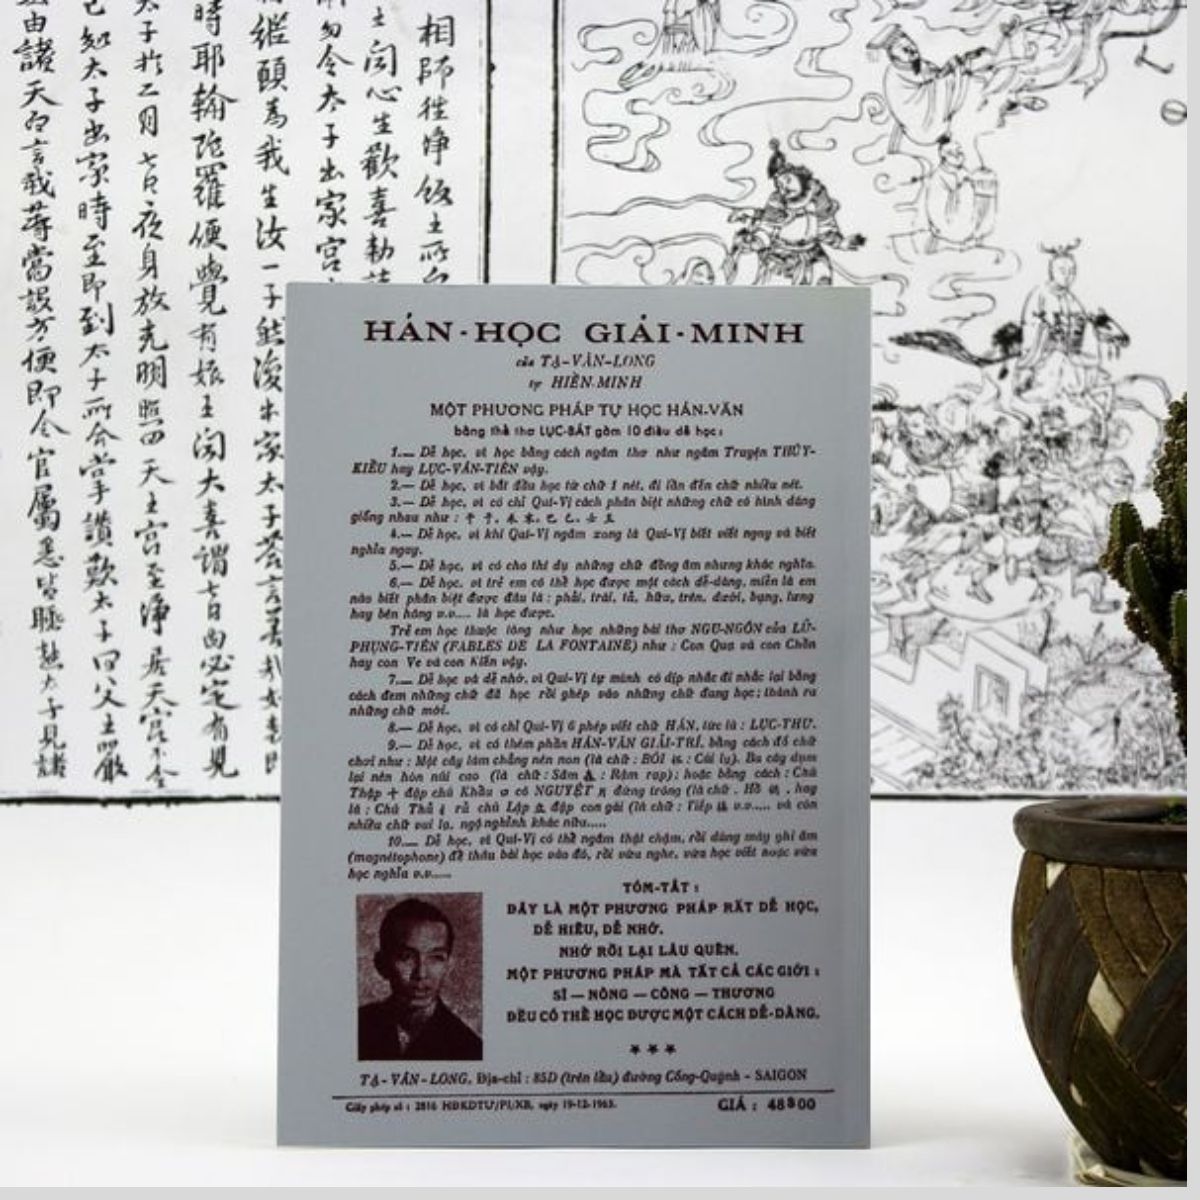 相師往淨飯王所白
王闻心生歡喜勅諸
勿令太子出家宮
繼頋為我生汝一子
時耶翰陀羅便覺有娠王闻大喜謂七日內必定有見
太子於二月七日夜身放光明照四天王宮至淨居天宮
知太子出家時至即到太子所合掌讚歎太子曰父王嚴
由諸天白言我等當設方便即令官屬悉皆睡熟太子見諸
HÁN-HỌC GIẢI-MINH
của TẠ-VĂN-LONG
tự HIỀN-MINH
MỘT PHƯƠNG PHÁP TỰ HỌC HÁN-VĂN
bằng thể thơ LỤC-BÁT gồm 10 điều dễ học:
1.— Dễ học, vì học bằng cách ngâm thơ như ngâm Truyện THÚY-
KIỀU hay LỤC-VÂN-TIÊN vậy.
2.— Dễ học, vì bắt đầu học từ chữ 1 nét, đi lần đến chữ nhiều nét.
3.— Dễ học, vì có chỉ Quí-Vị cách phân biệt những chữ có hình dáng
giống nhau như : 干 于, 未 末, 已 己, 士 土
4.— Dễ học, vì khi Quí-Vị ngâm xong là Quí-Vị biết viết ngay và biết
nghĩa ngay.
5.— Dễ học, vì có cho thí dụ những chữ đồng âm nhưng khác nghĩa.
6.— Dễ học, vì trẻ em có thể học được một cách dễ-dàng, miễn là em
nào biết phân biệt được đâu là : phải, trái, tả, hữu, trên, dưới, bụng, lưng
hay bên hông v.v.... là học được.
Trẻ em học thuộc lòng như học những bài thơ NGỤ-NGÔN của LÃ-
PHỤNG-TIÊN (FABLES DE LA FONTAINE) như : Con Quạ và con Chồn
hay con Ve và con Kiến vậy.
7.— Dễ học và dễ nhớ, vì Quí-Vị tự mình có dịp nhắc đi nhắc lại bằng
cách đem những chữ đã học rồi ghép vào những chữ đang học; thành ra
những chữ mới.
8.— Dễ học, vì có chỉ Quí-Vị 6 phép viết chữ HÁN, tức là : LỤC-THƯ.
9.— Dễ học, vì có thêm phần HÁN-VĂN GIẢI-TRÍ, bằng cách đố chữ
chơi như : Một cây làm chẳng nên non (là chữ : BÔI : Cái ly). Ba cây dụm
lại nên hòn núi cao (là chữ : Sâm : Rậm rạp); hoặc bằng cách : Chú
Thập 十 đập chú Khẩu có NGUYỆT 月 đứng trông (là chữ : Hồ , hay
là : Chú Thủ rủ chú Lập 立 đập con gái (là chữ : Tiếp 接 v.v..... và còn
nhiều chữ vui lạ, ngộ nghĩnh khác nữa.....
10.— Dễ học, vì Quí-Vị có thể ngâm thật chậm, rồi dùng máy ghi âm
(magnétophone) để thâu bài học vào đó, rồi vừa nghe, vừa học viết hoặc vừa
học nghĩa v.v.....
TÓM-TẮT :
ĐÂY LÀ MỘT PHƯƠNG PHÁP RẤT DỄ HỌC,
DỄ HIỂU, DỄ NHỚ.
NHỚ RỒI LẠI LÂU QUÊN.
MỘT PHƯƠNG PHÁP MÀ TẤT CẢ CÁC GIỚI :
SĨ — NÔNG — CÔNG — THƯƠNG
ĐỀU CÓ THỂ HỌC ĐƯỢC MỘT CÁCH DỄ-DÀNG.
★ ★ ★
TẠ-VĂN-LONG, Địa-chỉ : 85D (trên lầu) đường Cống-Quỳnh - SAIGON
Giấy phép số : 2816 HĐKDTƯ/PI/XB, ngày 19-12-1963.
GIÁ : 48$00